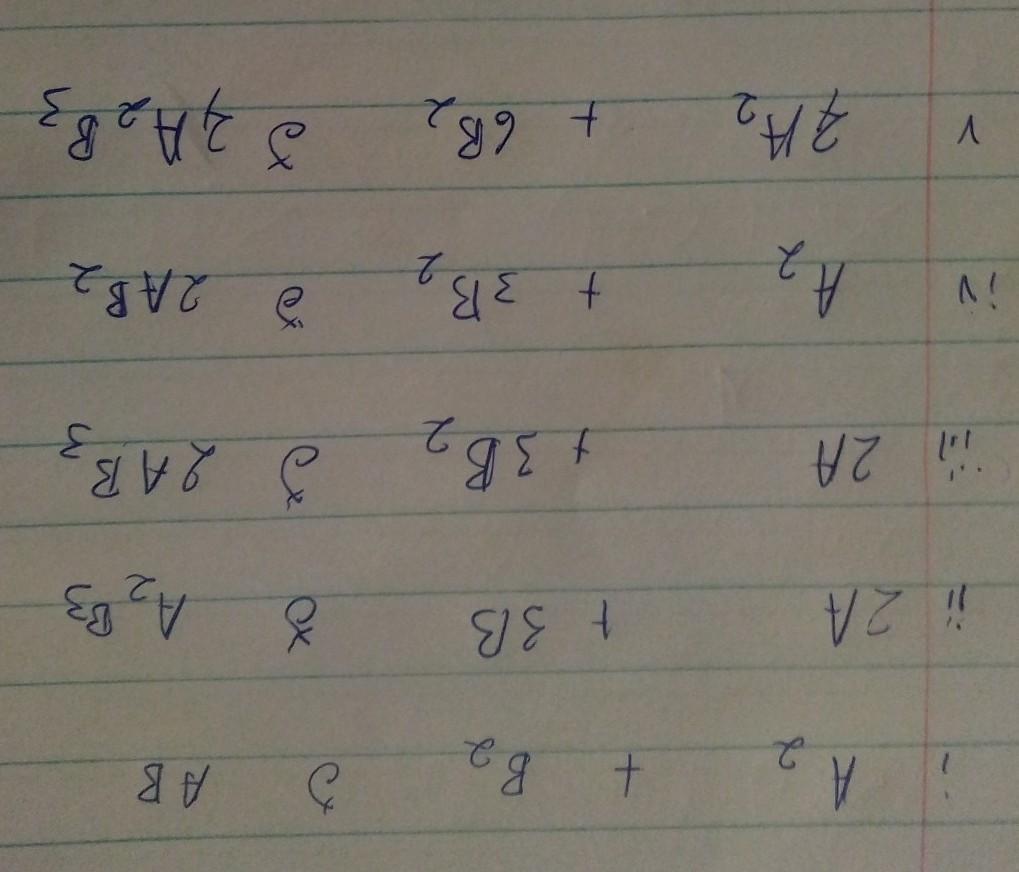 i A₂ + B₂ à AB
ii 2A + 3B à A₂B₃
iii 2A + 3B₂ à 2AB₃
iv A₂ + 3B₂ à 2AB₂
v 4A₂ + 6B₂ à 4A₂B₃